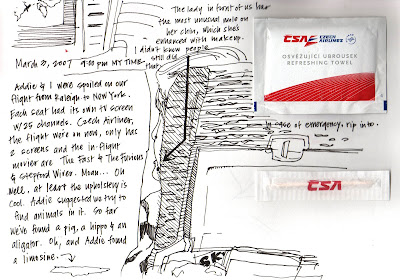 The lady in front of us has
the most unusual mole on
her chin, which she's
enhanced with makeup.
I didn't know people
still did
that.
March 3, 2007 9:00 PM MY TIME
Addie & I were spoiled on our
flight from Raleigh to New York.
Each seat had its own TV screen
w/25 channels. Czech Airlines,
the flight we're on now, only has
2 screens and the in-flight
movies are The Fast & The Furious
& Stepford Wives. Moan... Oh
well, at least the upholstery is
cool. Addie suggested we try to
find animals in it. So far
we've found a pig, a hippo & an
aligator. Oh, and Addie found
a limosine.
CSA CZECH
AIRLINES
OSVĚŽUJÍCÍ UBROUSEK
REFRESHING TOWEL
In case of emergency, rip into.
CSA
SK